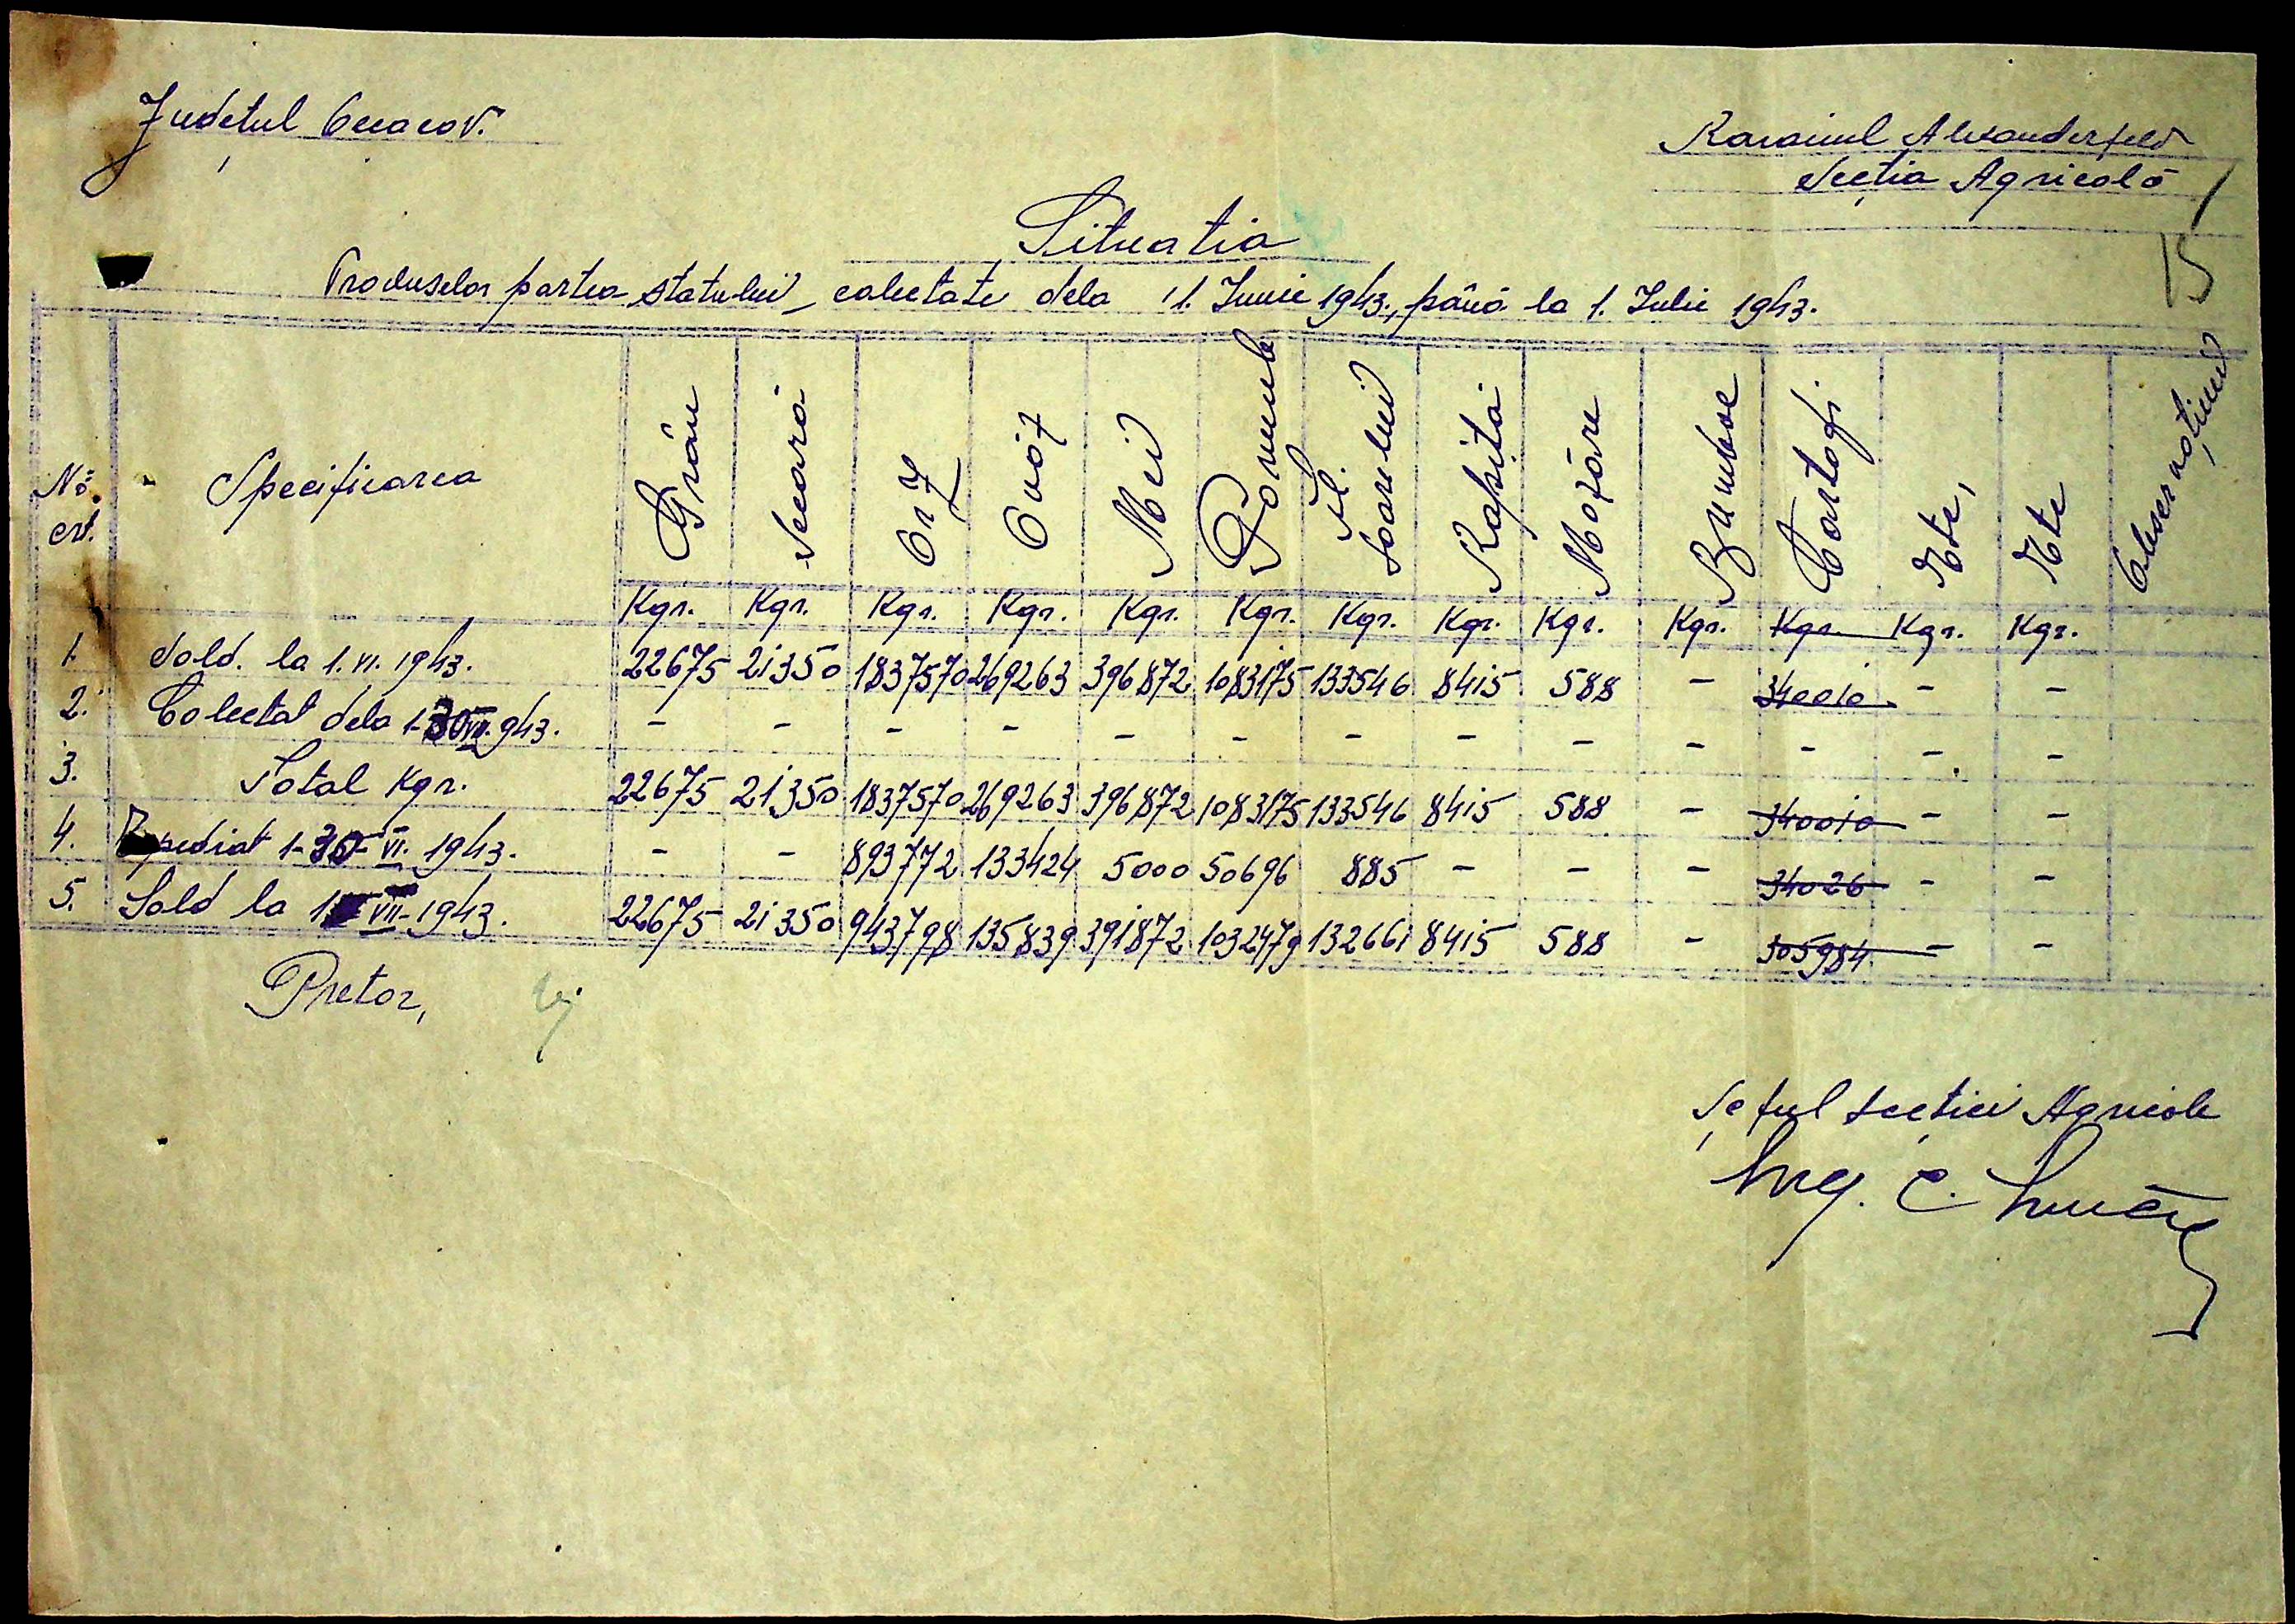 Județul Oceacov.
Raraionul Alexanderfeld
Secția Agricolă
15
Situatia
Produselor partea statului colectate dela 1. Iunie 1943, până la 1. Iulie 1943.
No. crt. Specificarea Grâu Secară Orz Ovăz Mei Porumb Fl. Soarelui Rapița Mazăre Bumbac Cartofi Etc, Etc Observațiuni
Kgr. Kgr. Kgr. Kgr. Kgr. Kgr. Kgr. Kgr. Kgr. Kgr. Kgr. Kgr. Kgr.
1. Sold. la 1.VI.1943. 22675 21350 1837570 269263 396872 1083175 133546 8415 588 - 340010 - -
2. Colectat dela 1-30 VI.943. - - - - - - - - - - - - -
3. Total Kgr. 22675 21350 1837570 269263 396872 1083175 133546 8415 588 - 340010 - -
4. Expediat 1-30 VI. 1943. - - 893772 133424 5000 50696 885 - - - 34026 - -
5. Sold la 1 VII-1943. 22675 21350 943798 135839 391872 1032479 132661 8415 588 - 305984 - -
Pretor,
Șeful Secției Agricole
Ing. C.